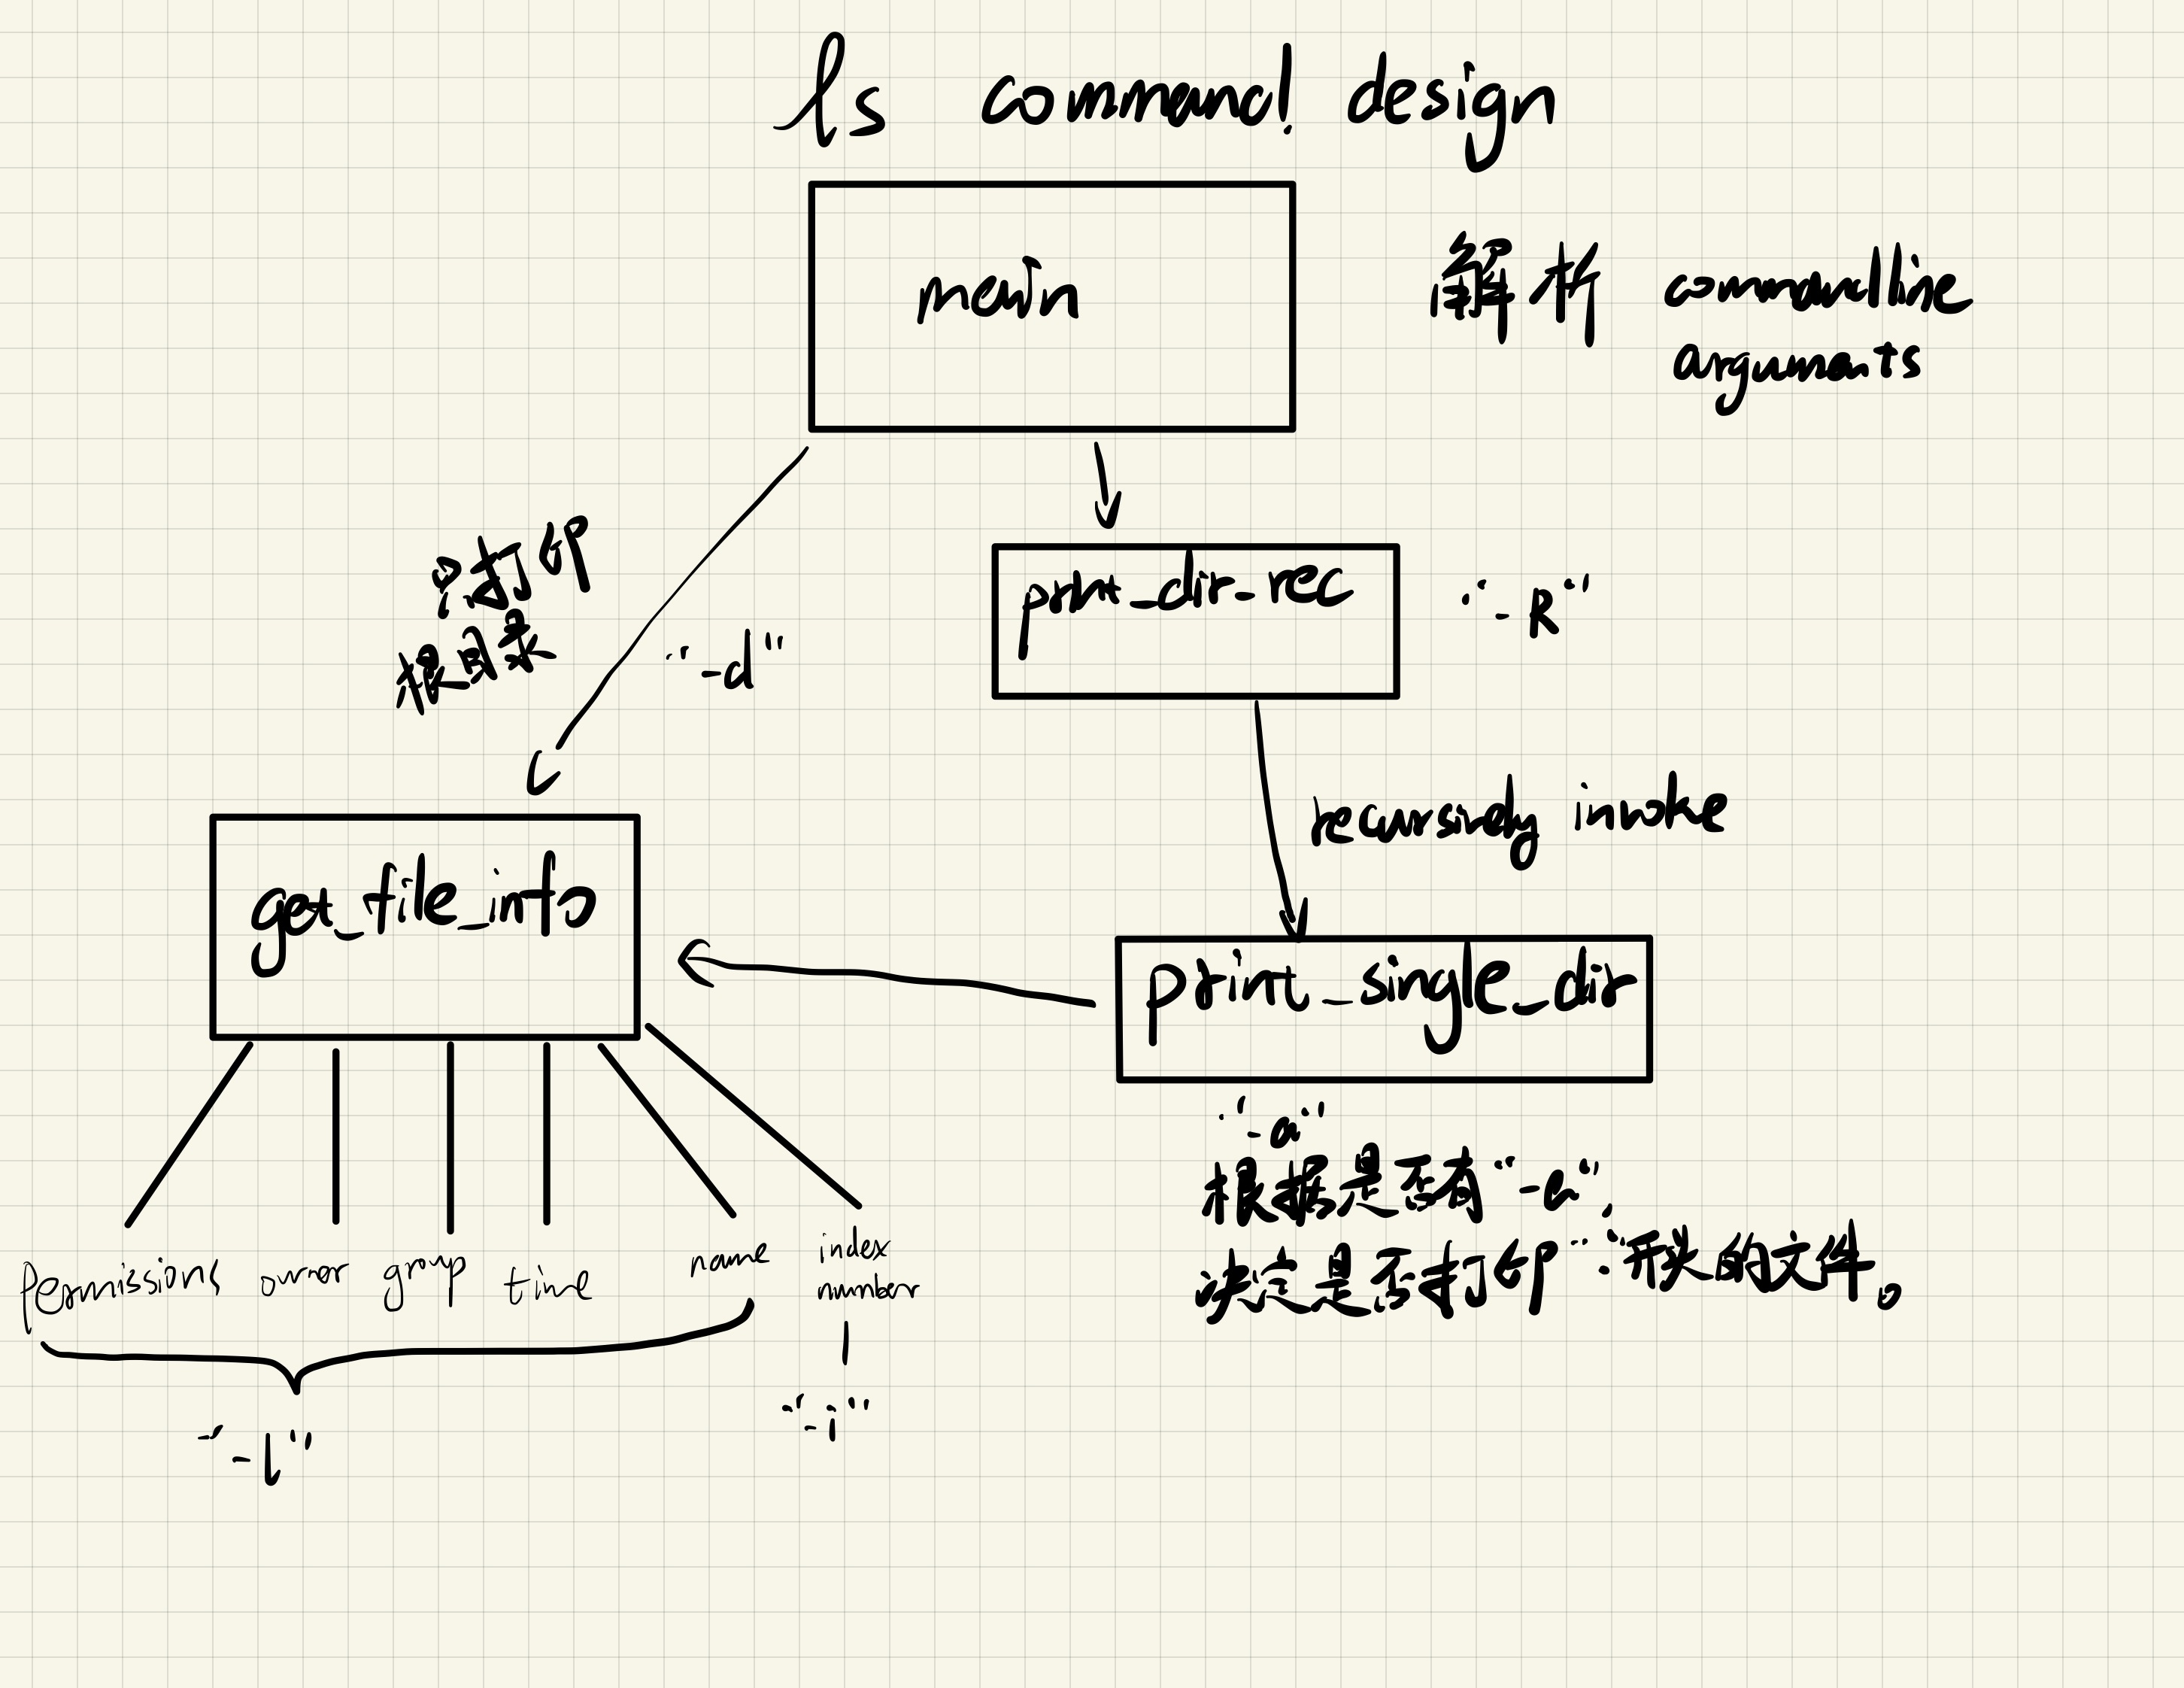 ls command design
main
解析 commandline
arguments
只打印
根目录
"-d"
print_dir_rec
"-R"
recursively invoke
get_file_info
print_single_dir
"-a"
根据是否有"-a",
决定是否打印"."开头的文件。
permissions owner group time name index
number
"-l"
"-i"